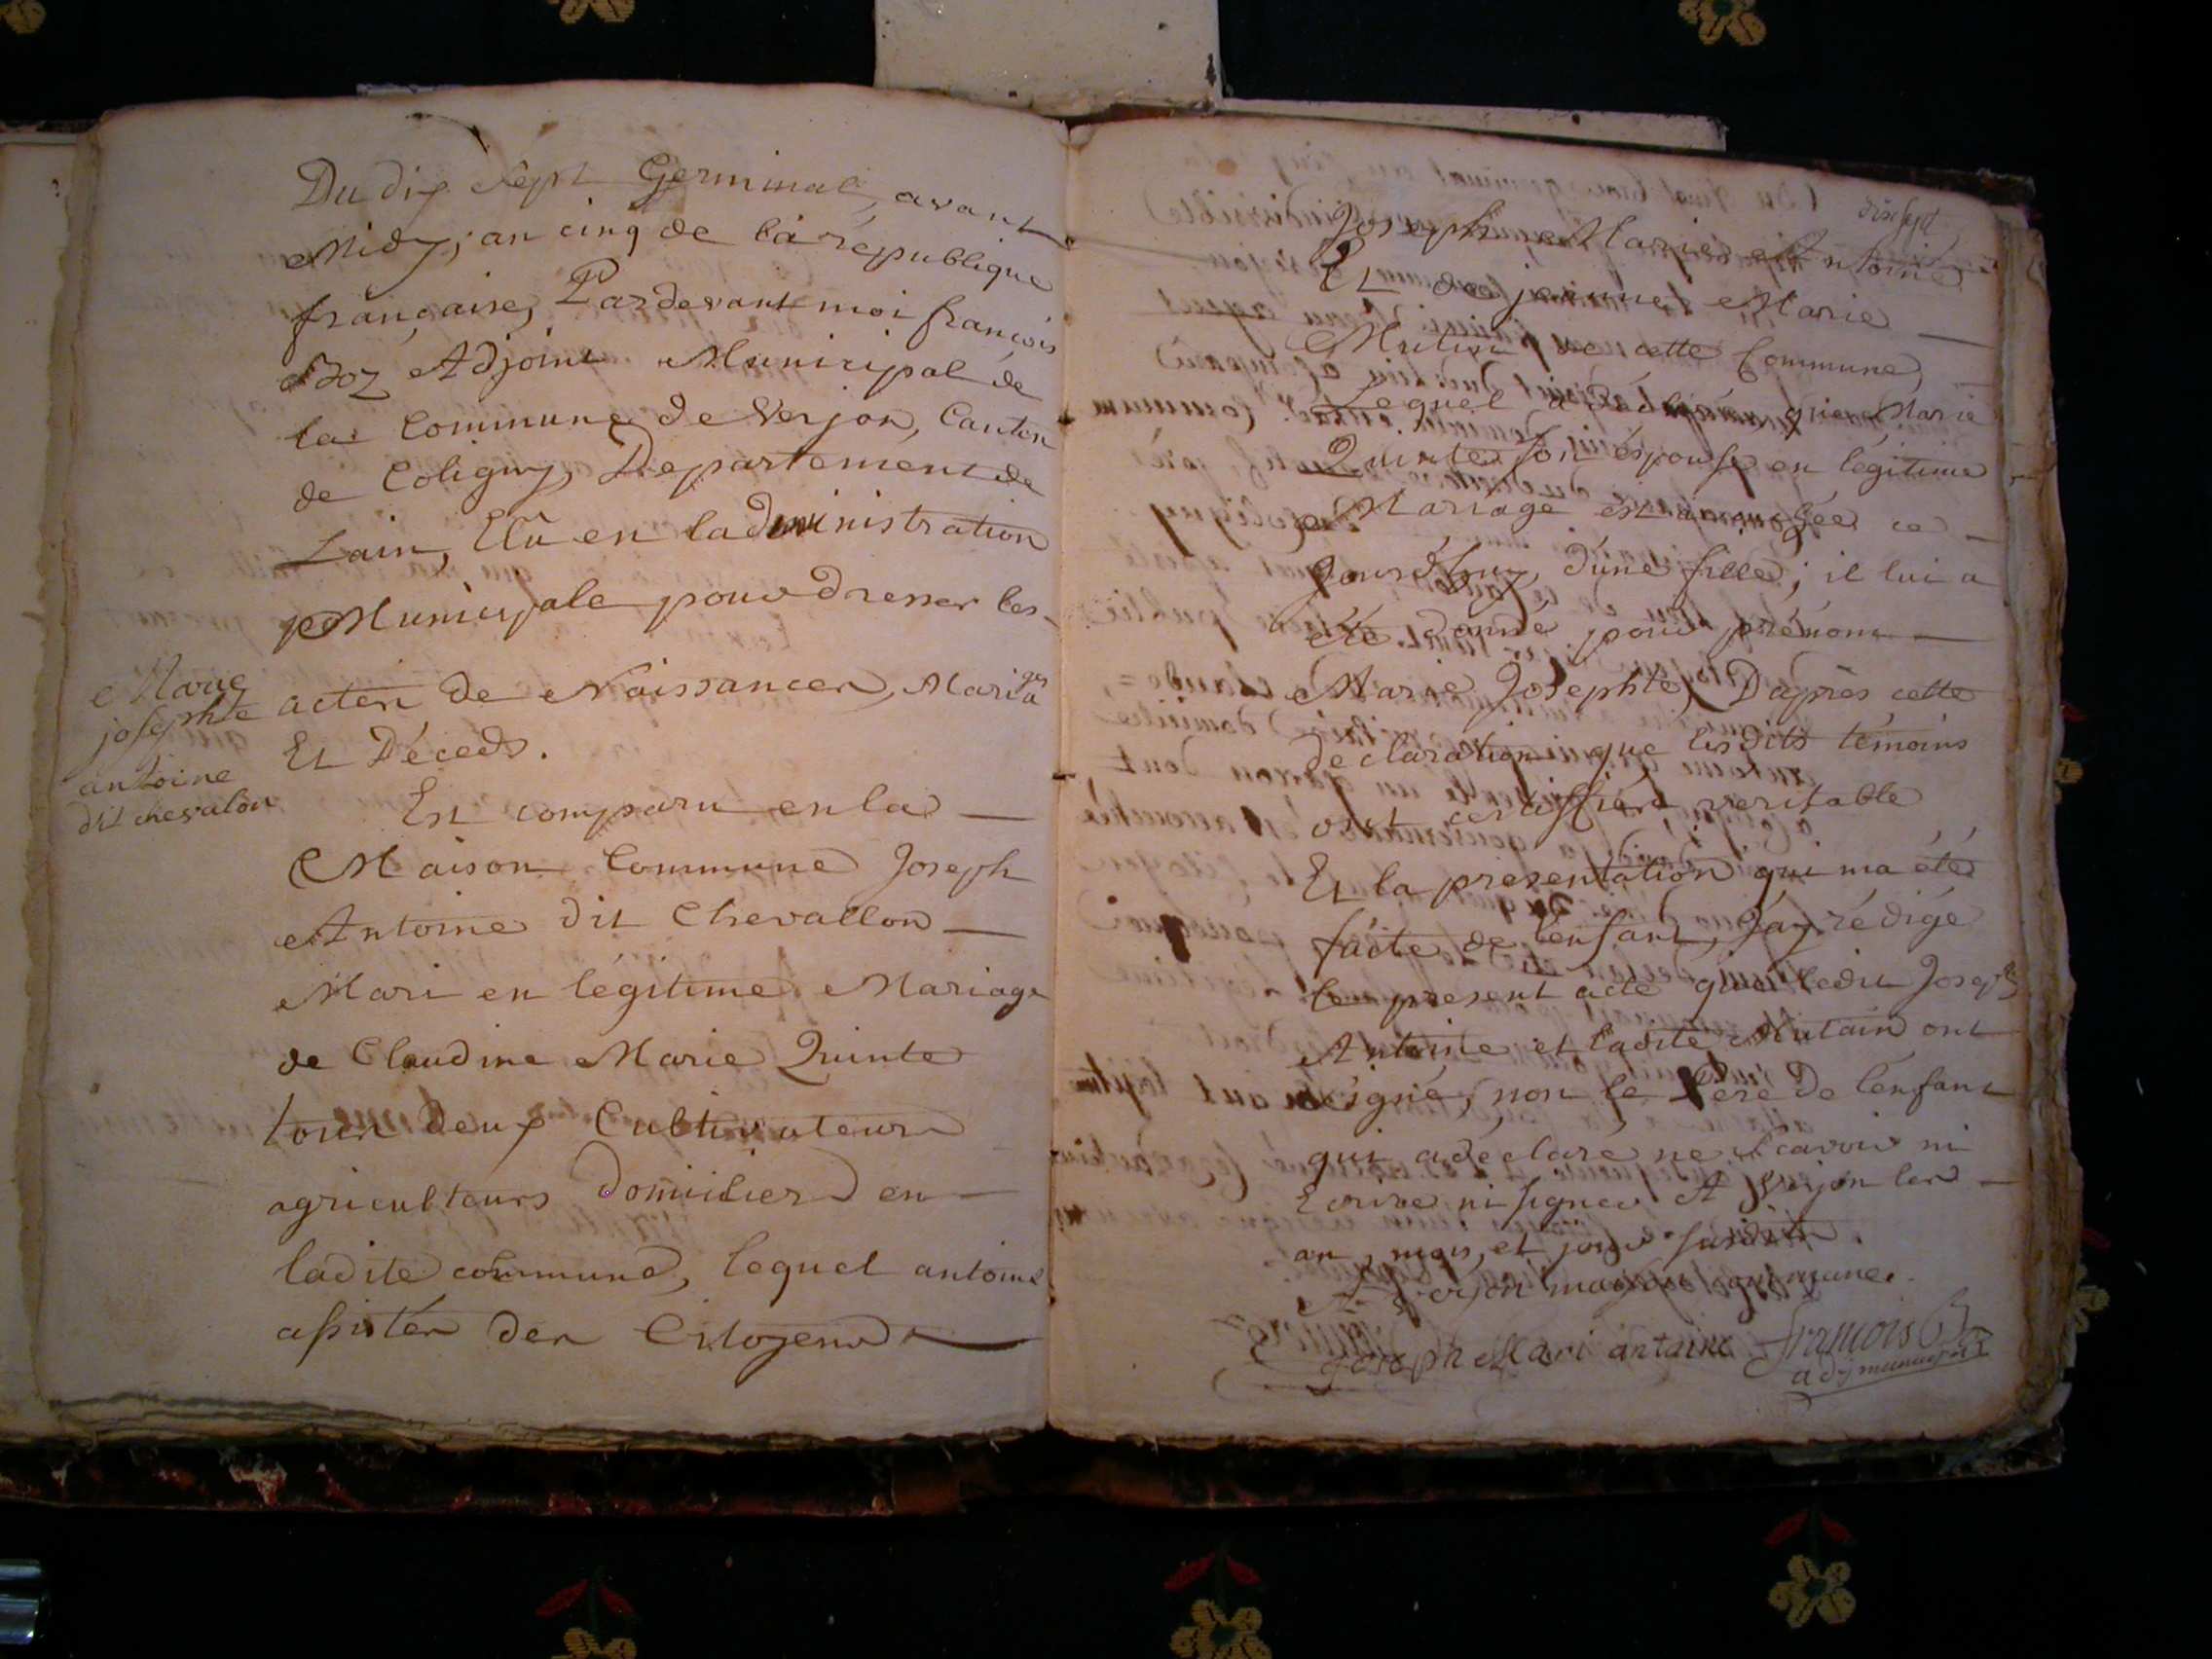 Du dix Sept Germinal, avant
Midy, an cinq de la république
française, Pardevant moi françois
Boz Adjoint Municipal de
la Commune de Verjon, Canton
de Coligny, Departement de
Lain, Elû en ladministration
Municipale pour dresser les
Marie
josephte
antoine
dit chevalon
actes de Naissances, Mariages
Et Déceds.
Est comparu en la
Maison Commune Joseph
Antoine dit Chevallon
Mari en légitime Mariage
de Claudine Marie Quinte
tous deux Cultivateurs
agriculteurs domiciliers en
ladite commune, lequel antoine
assistés des Citoyens
dixsept
Joseph Marie Antoine
Et de jeanne Marie
Mutin de cette Commune,
Lequel a déclaré que Marie
Quinte son épouse en légitime
Mariage est accouchée ce
Jourd'huy, d'une fille; il lui a
été donné pour prénom
Marie Josephte, D'après cette
déclaration que lesdits témoins
ont certiffiéré veritable
Et la presentation qui ma été
faite de l'enfant, J'ay rédigé
le present acte que ledit Joseph
Antoine et ladite Mutain ont
signé, non le Père de l'enfant
qui a déclaré ne scavoir ni
Ecrire ni signer A Verjon les
an, mois, et jour susdits.
A Verjon maison commune.
joseph Mari antaine françois Boz
adj municipal